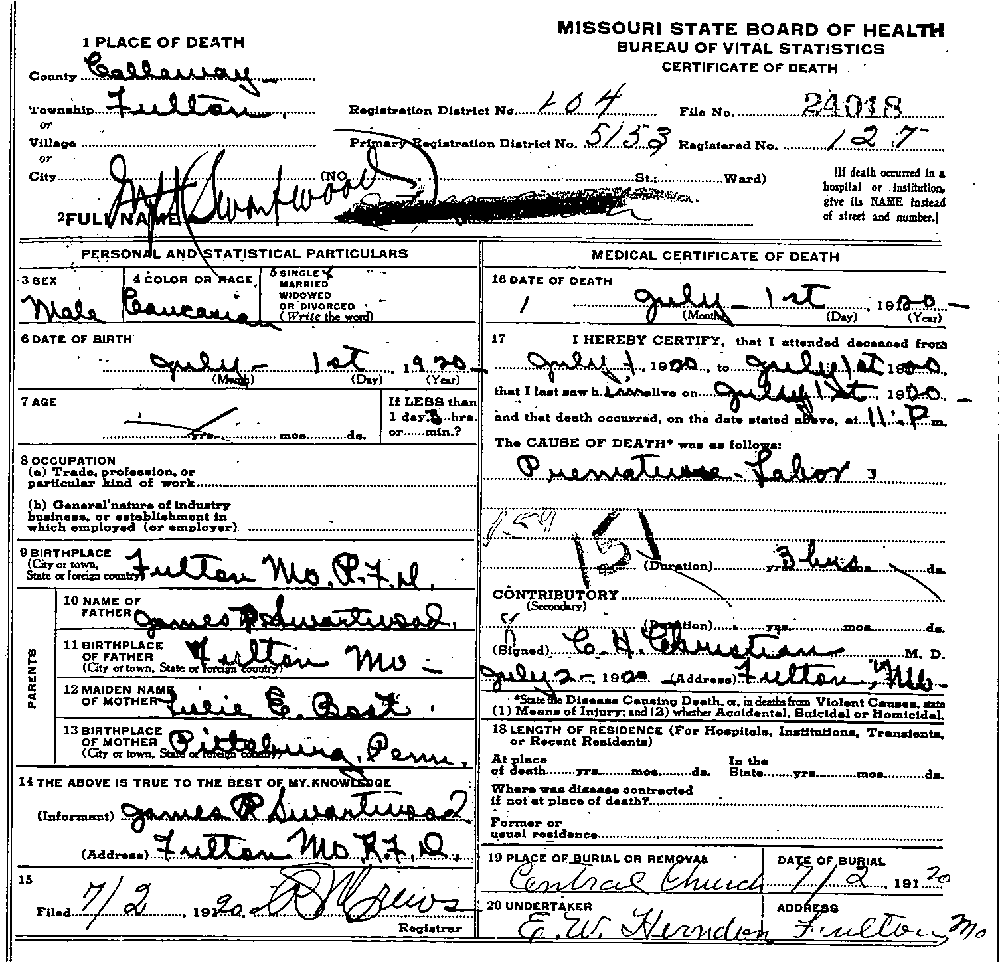 MISSOURI STATE BOARD OF HEALTH
BUREAU OF VITAL STATISTICS
CERTIFICATE OF DEATH
1 PLACE OF DEATH
County Callaway
Township Fulton
or
Village
or
City
Registration District No. 104 File No. 24018
Primary Registration District No. 5153 Registered No. 127
(NO. St.; Ward)
[If death occurred in a
hospital or institution,
give its NAME instead
of street and number.]
2 FULL NAME Swartwood
PERSONAL AND STATISTICAL PARTICULARS
3 SEX
Male
4 COLOR OR RACE
Caucasian
5 SINGLE
MARRIED
WIDOWED
OR DIVORCED
(Write the word)
6 DATE OF BIRTH
July - 1st, 1920
(Month) (Day) (Year)
7 AGE
yrs. mos. ds.
If LESS than
1 day, 3 hrs.
or min.?
8 OCCUPATION
(a) Trade, profession, or
particular kind of work
(b) General nature of industry
business, or establishment in
which employed (or employer)
9 BIRTHPLACE
(City or town,
State or foreign country)
Fulton Mo. R.F.D.
PARENTS
10 NAME OF
FATHER
James R Swartwood
11 BIRTHPLACE
OF FATHER
(City or town, State or foreign country)
Fulton Mo -
12 MAIDEN NAME
OF MOTHER
E.
13 BIRTHPLACE
OF MOTHER
(City or town, State or foreign country)
Pittsburg, Penn.
14 THE ABOVE IS TRUE TO THE BEST OF MY KNOWLEDGE
(Informant) James R Swartwood
(Address) Fulton Mo R.F.D.
15
Filed 7/2, 1920 Crews
Registrar
MEDICAL CERTIFICATE OF DEATH
16 DATE OF DEATH
July - 1st 1920
(Month) (Day) (Year)
17 I HEREBY CERTIFY, that I attended deceased from
July 1, 1920, to July 1st 1920
that I last saw him alive on July 1st 1920
and that death occurred, on the date stated above, at 11 P m.
The CAUSE OF DEATH* was as follows:
Premature Labor
159
151
(Duration) yrs. 3 hrs mos. ds.
CONTRIBUTORY
(Secondary)
(Duration) yrs. mos. ds.
(Signed) C. H. Christian M. D.
July 2 - 1920 (Address) Fulton, Mo.
*State the Disease Causing Death, or, in deaths from Violent Causes, state
(1) Means of Injury; and (2) whether Accidental, Suicidal or Homicidal.
18 LENGTH OF RESIDENCE (For Hospitals, Institutions, Transients,
or Recent Residents)
At place
of death yrs. mos. ds.
In the
State yrs. mos. ds.
Where was disease contracted
if not at place of death?
Former or
usual residence
19 PLACE OF BURIAL OR REMOVAL
Central Church
DATE OF BURIAL
7/2, 1920
20 UNDERTAKER
E. W. Herndon
ADDRESS
Fulton Mo